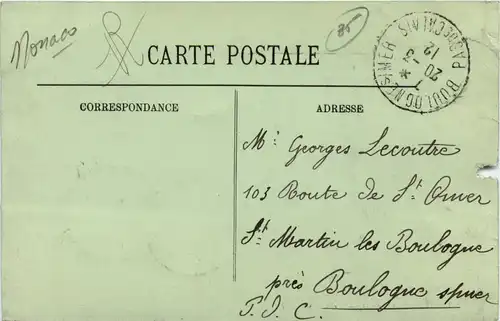 Monaco
85
CARTE POSTALE
BOULOGNE S MER PAS DE CALAIS
7 *
20 - 3
12
CORRESPONDANCE
ADRESSE
Mr Georges Lecoutre
103 Route de St Omer
St Martin les Boulogne
près Boulogne s/mer
P. d. C.